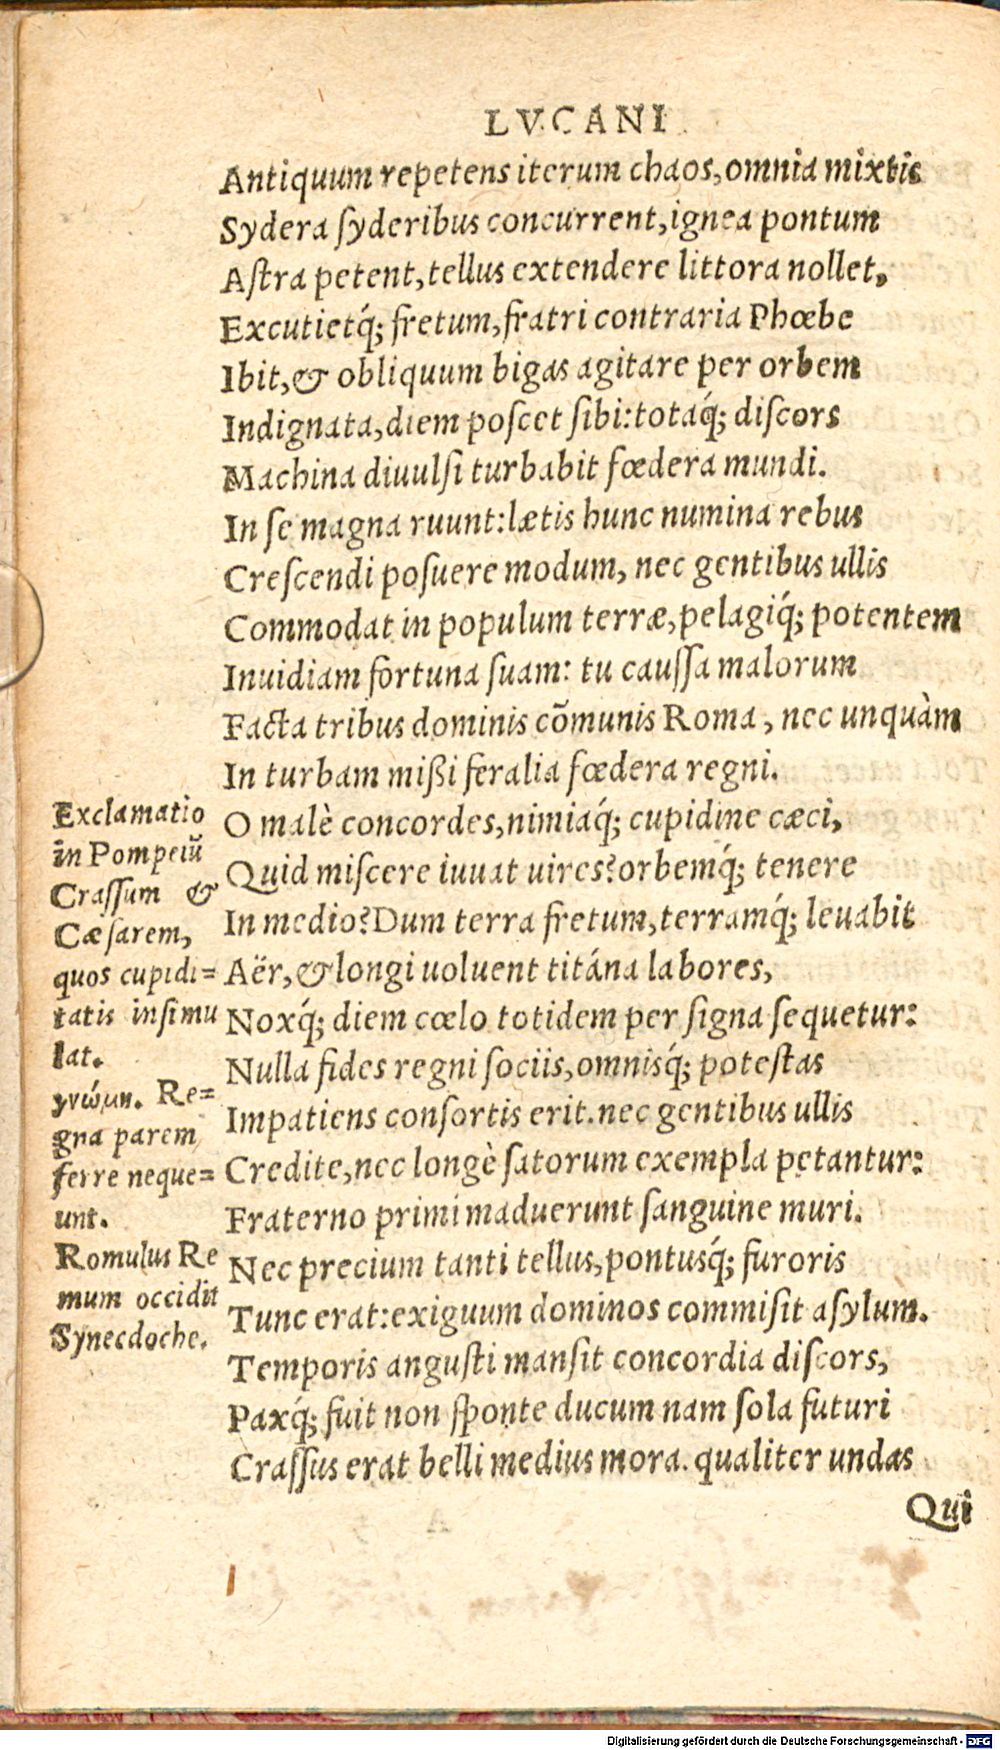 LVCANI
Antiquum repetens iterum chaos, omnia mixtis
Sydera ſyderibus concurrent, ignea pontum
Aſtra petent, tellus extendere littora nollet,
Excutietq́; fretum, fratri contraria Phœbe
Ibit, & obliquum bigas agitare per orbem
Indignata, diem poſcet ſibi: totaq́; diſcors
Machina diuulſi turbabit fœdera mundi.
In ſe magna ruunt: lætis hunc numina rebus
Creſcendi poſuere modum, nec gentibus ullis
Commodat in populum terræ, pelagiq́; potentem
Inuidiam fortuna ſuam: tu cauſſa malorum
Facta tribus dominis cõmunis Roma, nec unquàm
In turbam mißi feralia fœdera regni.
O malè concordes, nimiaq́; cupidine cæci,
Quid miſcere iuuat uires? orbemq́; tenere
In medio? Dum terra fretum, terramq́; leuabit
Aër, & longi uoluent titána labores,
Noxq́; diem cœlo totidem per ſigna ſequetur:
Nulla fides regni ſociis, omnisq́; poteſtas
Impatiens conſortis erit. nec gentibus ullis
Credite, nec longè ſatorum exempla petantur:
Fraterno primi maduerunt ſanguine muri.
Nec precium tanti tellus, pontusq́; furoris
Tunc erat: exiguum dominos commiſit aſylum.
Temporis anguſti manſit concordia diſcors,
Paxq́; fuit non ſponte ducum nam ſola futuri
Craſſus erat belli medius mora. qualiter undas
Qui
Exclamatio
in Pompeiũ
Craſſum &
Cæſarem,
quos cupidi=
tatis inſimu
lat.
γνώμη. Re=
gna parem
ferre neque=
unt.
Romulus Re
mum occidit
Synecdoche.
Digitalisierung gefördert durch die Deutsche Forschungsgemeinschaft - DFG